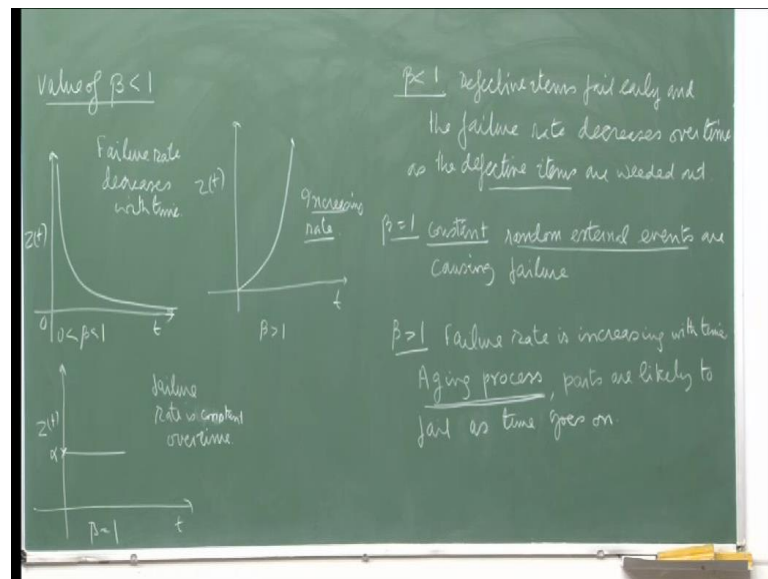 Value of β < 1
Failure rate
decreases
with time.
Z(t)
0
0 < β < 1
t
Z(t)
Increasing
rate
β > 1
t
failure
Rate is constant
overtime.
Z(t)
α
β = 1
t
β < 1 Defective items fail early and
the failure rate decreases over time
as the defective items are weeded out.
β = 1 constant random external events are
causing failure
β > 1 Failure rate is increasing with time
Aging process, parts are likely to
fail as time goes on.